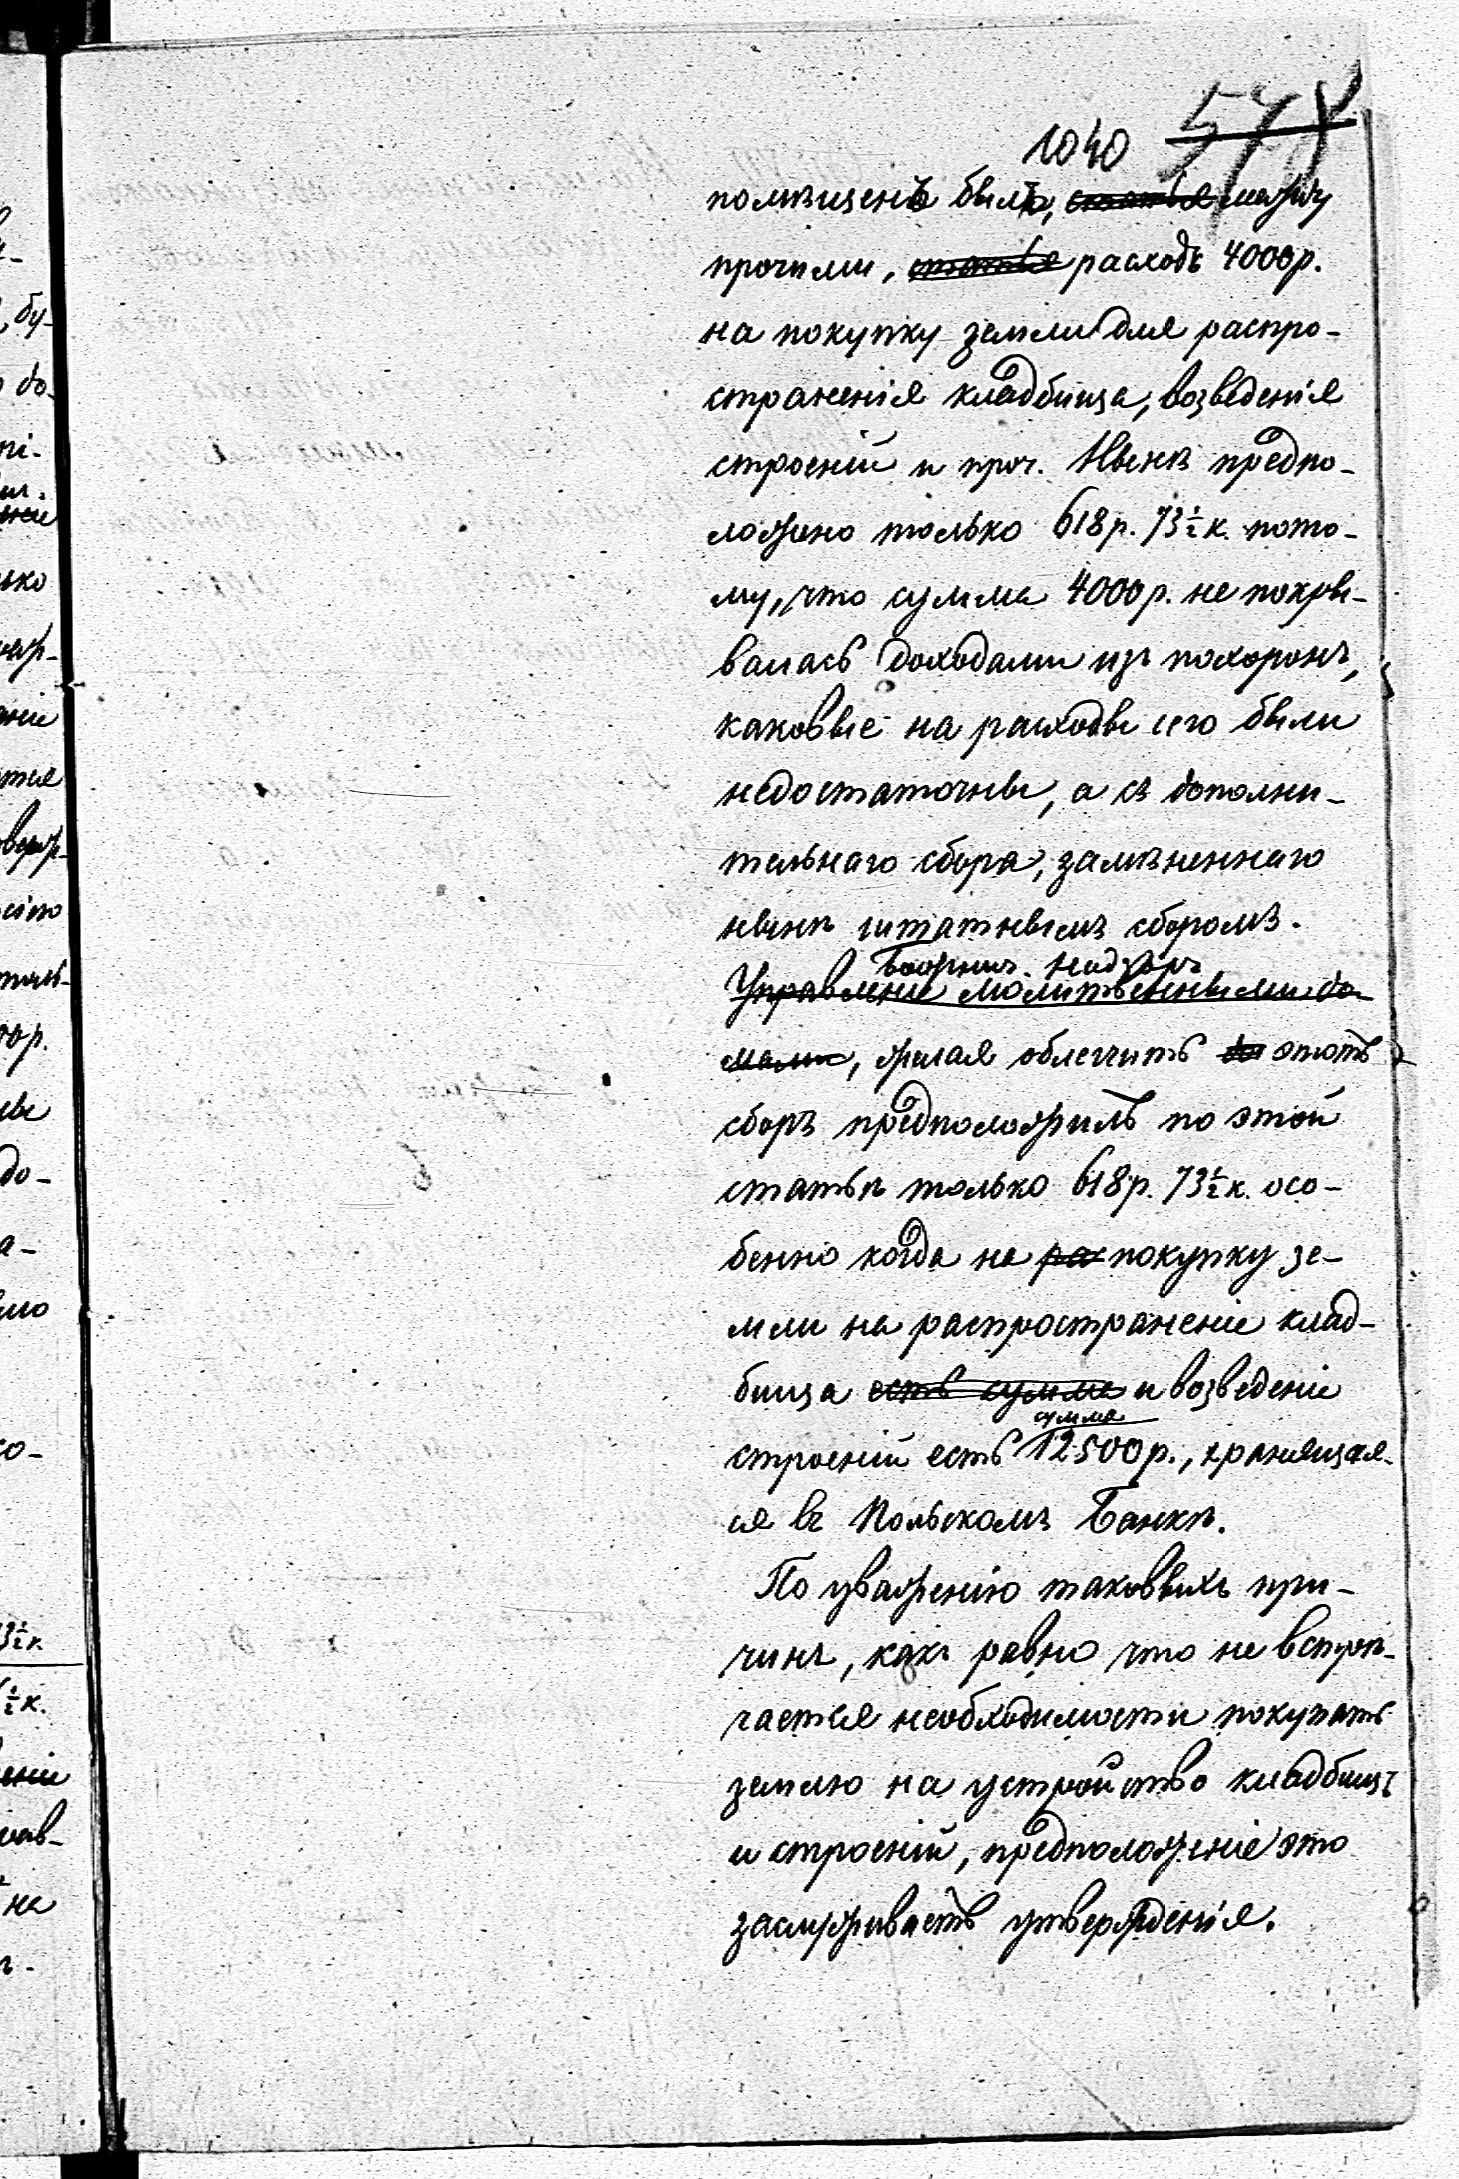 1040 ~~578~~
помѣщенъ былъ, ~~статья~~ между
прочими, ~~статья~~ расходъ 4000 р.
на покупку земли для распро-
страненія кладбища, возведенія
строеній и проч. Нынѣ предпо-
ложено только 618 р. 73½ к. пото-
му, что сумма 4000 р. не покры-
валась доходами изъ похоронъ,
каковые на расходы сего были
недостаточны, а съ дополни-
тельнаго сбора, замѣненнаго
нынѣ штатнымъ сборомъ.
Божнич. Надзоръ
~~Управленіе молитвенными до-~~
~~мами~~, желая облегчить этотъ
сборъ предположилъ по этой
статьѣ только 618 р. 73½ к. осо-
бенно когда на ~~ра~~ покупку зе-
мли на распространеніе клад-
бища ~~есть сумма~~ и возведеніе
сумма
строеній есть 12500 р., хранящая-
ся въ Польскомъ Банкѣ.
По уваженію таковыхъ при-
чинъ, какъ равно что не встрѣ-
чается необходимости покупать
землю на устройство кладбищъ
и строеній, предположеніе это
заслуживаетъ утвержденія.